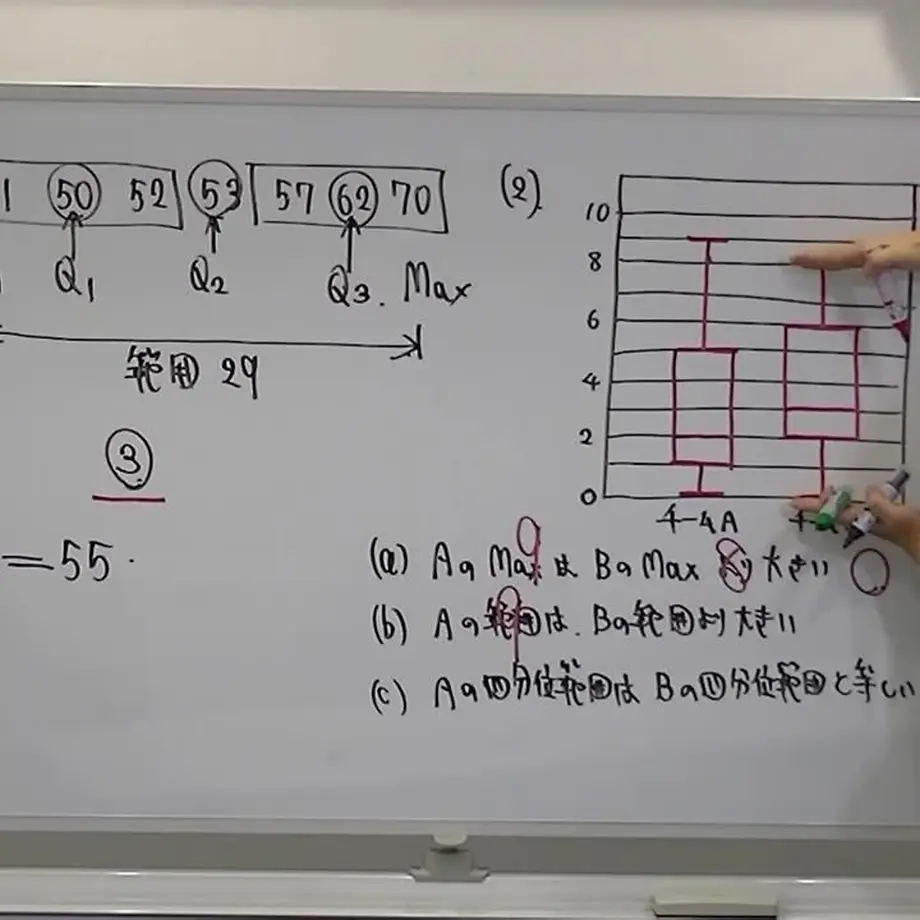 1 50 52 53 57 62 70
Q1 Q2 Q3. Max
範囲 29
③
=55.
(2).
10
8
6
4
2
0
4-4A
(a) Aの Maxは BのMax より 大きい
(b) Aの範囲は. Bの範囲より大きい
(c) Aの四分位範囲は Bの四分位範囲と等しい